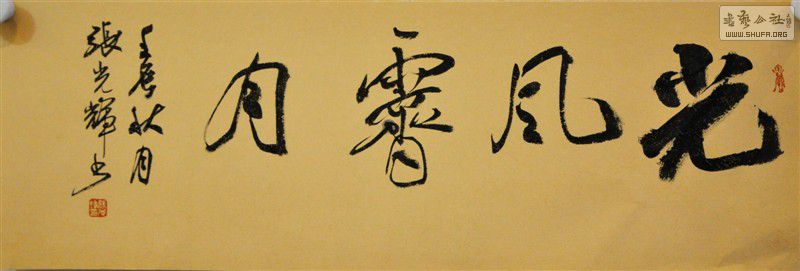 光风霽月
壬辰秋月
張光輝书
書藝公社
WWW.SHUFA.ORG